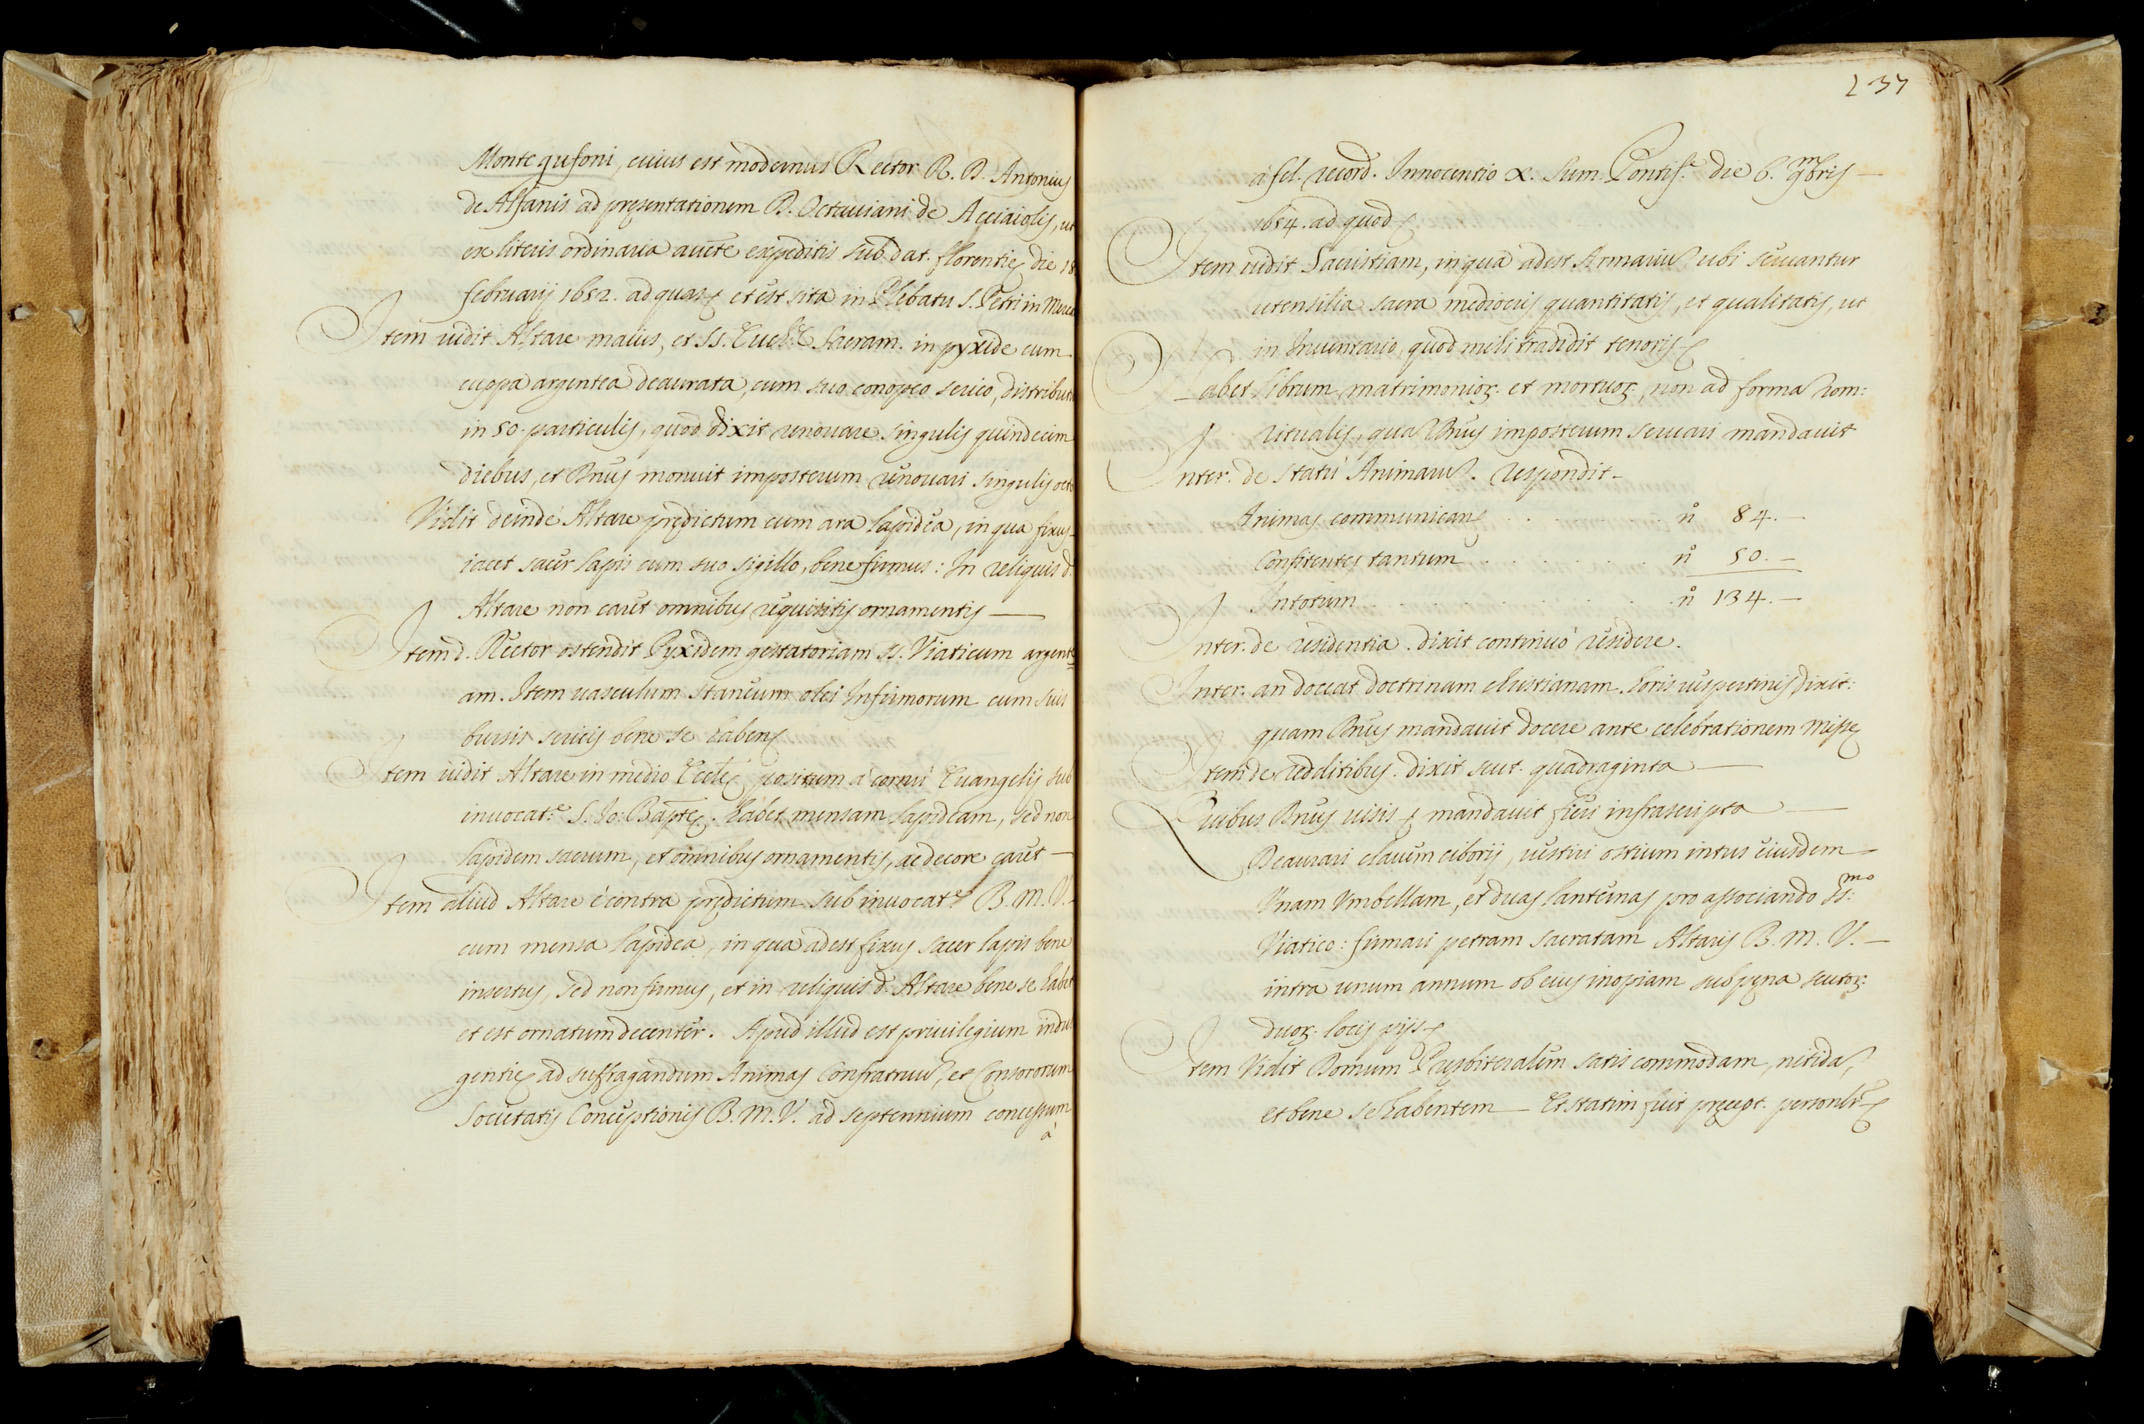 Monte gufoni, cuius est modernus Rector R. D. Antonius
de Alfanis ad pręsentationem D. Octauiani de Acciaiolis, ut
ex literis ordinaria aucte expeditis sub dat. florentię die 18
februarij 1652. ad quas et est sita in Plebatu S. Petri in Merca
Item uidit Altare maius, et SS. Euch.e Sacram. in pyxide cum
cuppa argentea deaurata, cum suo conopeo serico, distribut
in 50. particulis, quod dixit renouare singulis quindecim
diebus, et Dnus monuit imposterum renouari singulis octo
Vidit deindè Altare prędictum cum ara lapidea, in qua fixus
iacet sacer lapis cum suo sigillo, bene firmus: In reliquis d.
Altare non caret omnibus requisitis ornamentis —
Item d. Rector ostendit Pyxidem gestatoriam SS. Viaticum argente
am. Item uasculum staneum olei Infirmorum cum suis
bursis sericis bene se habens
Item uidit Altare in medio Eccles positum à cornu Euangelij sub
inuocat.e S. Jo: Baptę. Habet mensam lapideam, sed non
lapidem sacrum, et omnibus ornamentis, ac decore caret —
Item aliud Altare è contra prędictum sub inuocat.e B. M. V.
cum mensa lapidea, in qua adest fixus sacer lapis bene
insertus, sed non firmus, et in reliquis d. Altare bene se habet
et est ornatum decenter. Apud illud est priuilegium indul
gentię ad suffragandum Animas Confratrum, et Consororum
Societatis Conceptionis B. M. V. ad septennium concessum
à
237
à fel. record. Innocentio X. Sum. Pontif.e die 6. 9mbris —
1654. ad quod
Item uidit Sacristiam, in qua adest Armarium ubi seruantur
utensilia sacra mediocris quantitatis, et qualitatis, ut
in Inuentario, quod mihi tradidit tenoris
Habet librum matrimonioꝝ. et mortuoꝝ., non ad forma rom:
ritualis, qua Dnus imposterum seruari mandauit
Inter. de statu Animarum. respondit —
Animas communicans . . . . . n.º 84. —
Confitentes tantum . . . . . . n.º 50. —
In totum . . . . . . . . n.º 134. —
Inter. de residentia. dixit continuò residere.
Inter. an doceat doctrinam christianam. horis uespertinis dixit:
quam Dnus mandauit docere ante celebrationem missę
Item de redditibus. dixit scut. quadraginta —
Quibus Dnus uisis mandauit fieri infrascripta —
Deaurari clauem ciborij, uestiri ostium intus eiusdem —
Vnam Vmbellam, et duas lanternas pro associando Ss:mo
Viatico: firmari petram sacratam Altaris B. M. V. —
intra unum annum ob eius inopiam sub pęna scutoꝝ:
duoꝝ. locis pijs
Item Vidit Domum Presbiteralem satis commodam, nitida,
et bene se habentem — Et statim fuit pręcept. personlr